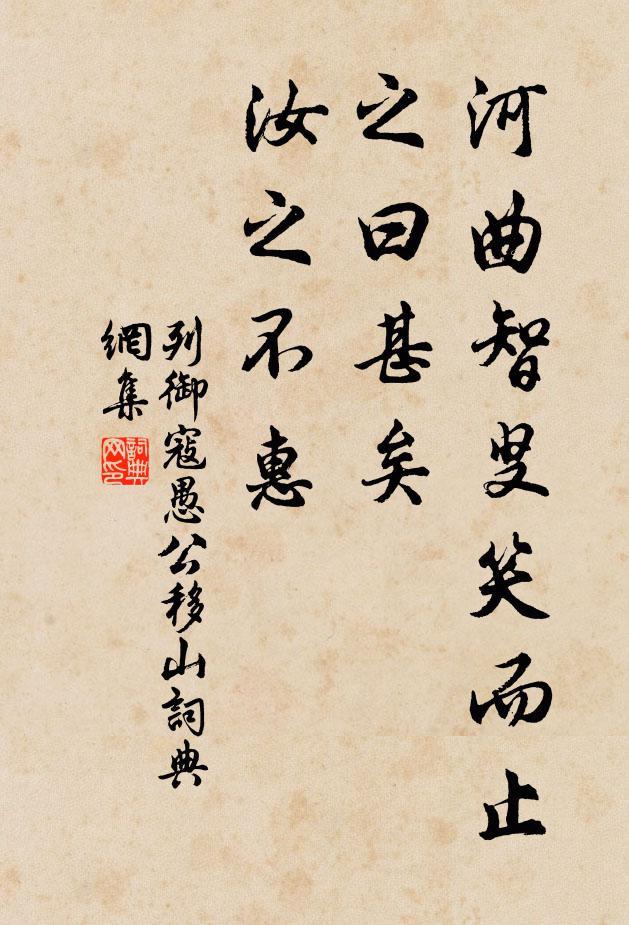 河曲智叟笑而止
之曰甚矣
汝之不惠
列御寇愚公移山詞典
網集
詞典
网印